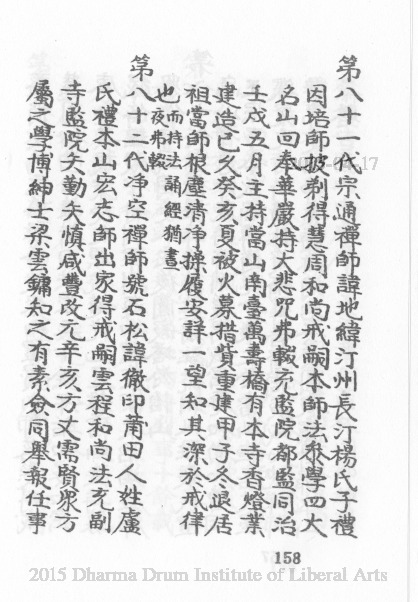 第八十一代宗通禪師諱地緯汀州長汀楊氏子禮
因培師披剃得慧周和尚戒嗣本師法叅學四大
名山回奉華嚴持大悲咒弗輟充監院都監同治
壬戌五月主持當山南臺萬壽橋有本寺香燈業
建造已久癸亥夏被火募措貲重建甲子冬退居
祖當師根塵清净操履安詳一望知其深於戒律
也而持法誦經猶晝夜弗輟
第八十二代净空禪師號石松諱徹印莆田人姓盧
氏禮本山宏志師出家得戒嗣雲程和尚法充副
寺監院矢勤矢慎咸豐改元辛亥方丈需賢衆方
屬之學博紳士梁雲鏞知之有素僉同舉報任事
17
158
2015 Dharma Drum Institute of Liberal Arts